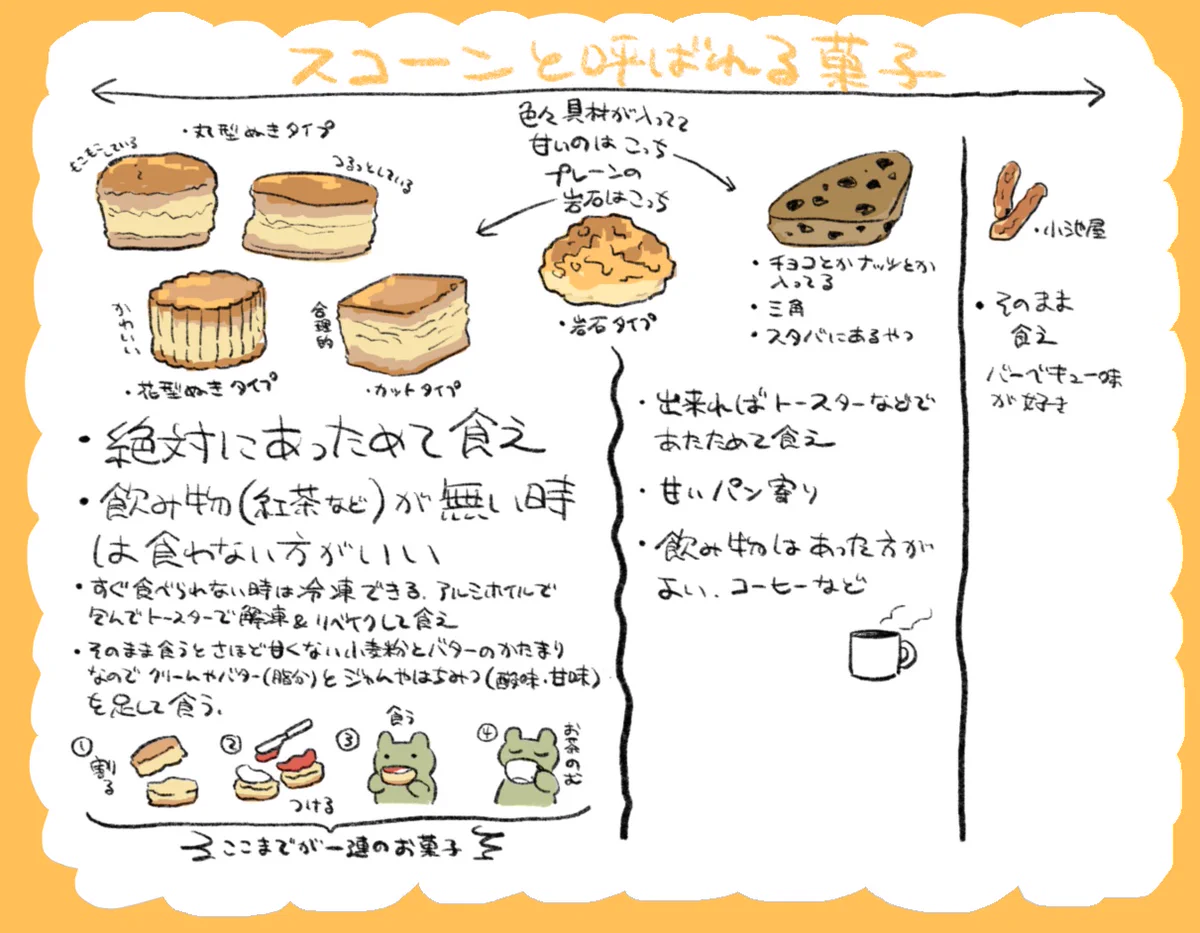 スコーンと呼ばれる菓子
・丸型ぬきタイプ
もこもこしている
つるっとしている
かわいい
・花型ぬきタイプ
合理的
・カットタイプ
色々具材が入ってて
甘いのはこっち
プレーンの
岩石はこっち
・岩石タイプ
・チョコとかナッツとか
入ってる
・三角
・スタバにあるやつ
・小池屋
・そのまま
食え
バーベキュー味
が好き
・絶対にあっためて食え
・飲み物(紅茶など)が無い時
は食わない方がいい
・すぐ食べられない時は冷凍できる。アルミホイルで
包んでトースターで解凍&リベイクして食え
・そのまま食うとさほど甘くない小麦粉とバターのかたまり
なのでクリームやバター(脂分)とジャムやはちみつ(酸味・甘味)
を足して食う。
①割る
②つける
③食う
④お茶のむ
ここまでが一連のお菓子
・出来ればトースターなどで
あたためて食え
・甘いパン寄り
・飲み物はあった方が
よい、コーヒーなど